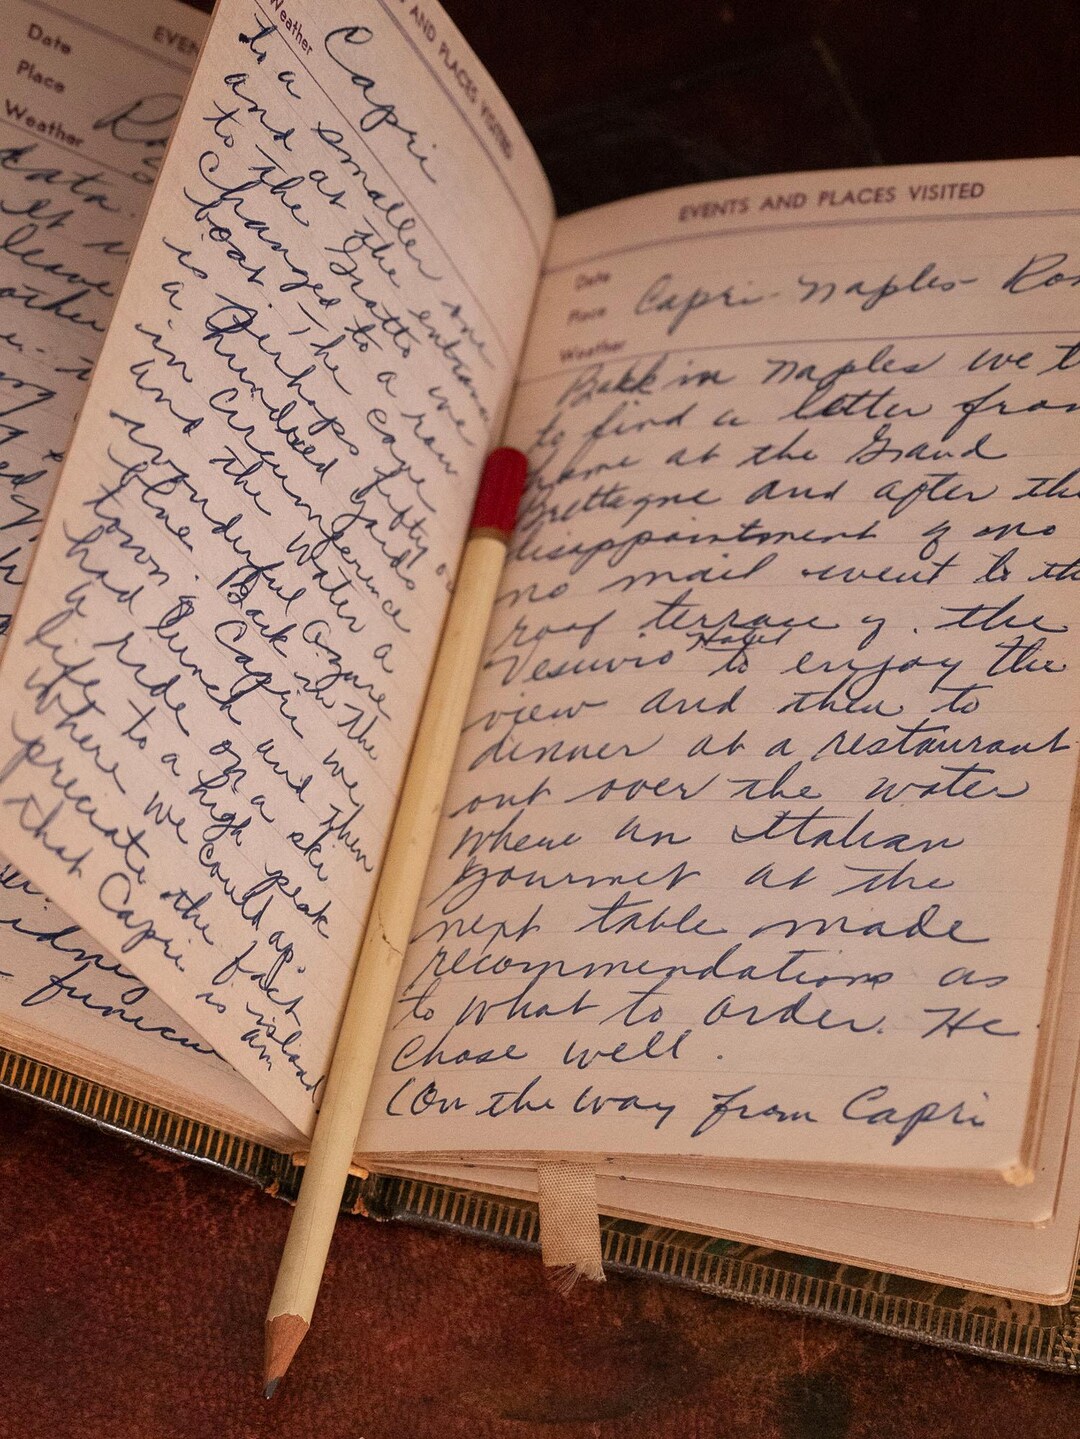 Date
Place
Weather
EVEN
data.
it
leave
other
kidney
funicu
Weather
AND PLACES VISITED
Capri
to a smaller one
and at the entrance
to the Grotto we
changed to a row
boat. The cave
is perhaps fifty or
a hundred yards
in circumference
and the water a
wonderful azure
blue. Back in the
town Capri we
had lunch and then
a ride on a ski
lift to a high peak
where we could ap-
preciate the fact
that Capri is an island
EVENTS AND PLACES VISITED
Date
Place Capri - Naples - Ro
Weather
Back in Naples we
to find a letter from
home at the Grand
Brettagne and after the
disappointment of no
no mail went to th
roof terrace of the
Vesuvio Hotel to enjoy the
view and then to
dinner at a restaurant
out over the water
where an Italian
gourmet at the
next table made
recommendations as
to what to order. He
chose well.
(On the way from Capri